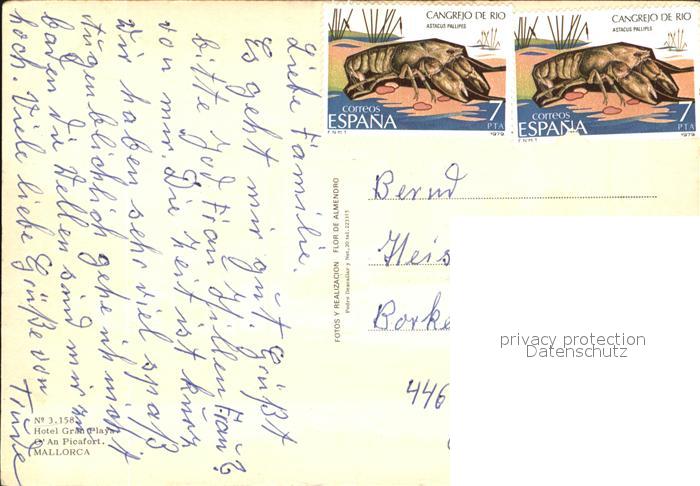 Liebe Familie.
Es geht mir gut. Grüßt
bitte Frau Hillen Frau
von mir. Die Zeit ist kurz
wir haben sehr viel spaß
Augenblicklich gehe ich nicht
baden die Wellen sind mir zu
hoch. Viele liebe Grüße von
CANGREJO DE RIO
ASTACUS PALLIPES
correos
ESPAÑA
7
PTA
F.N.M.T.
1979
CANGREJO DE RIO
ASTACUS PALLIPES
correos
ESPAÑA
7
PTA
F.N.M.T.
1979
FOTOS Y REALIZACION FLOR DE ALMENDRO
Bernd
Heis
Borke
446
privacy protection
Datenschutz
Nº 3.158
Hotel Gran Playa
C'An Picafort.
MALLORCA